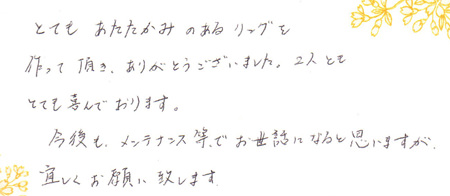 とても あたたかみ のある リングを
作って 頂き、ありがとうございました。2人とも
とても喜んでおります。
今後も、メンテナンス等でお世話になると思いますが、
宜しくお願い致します。